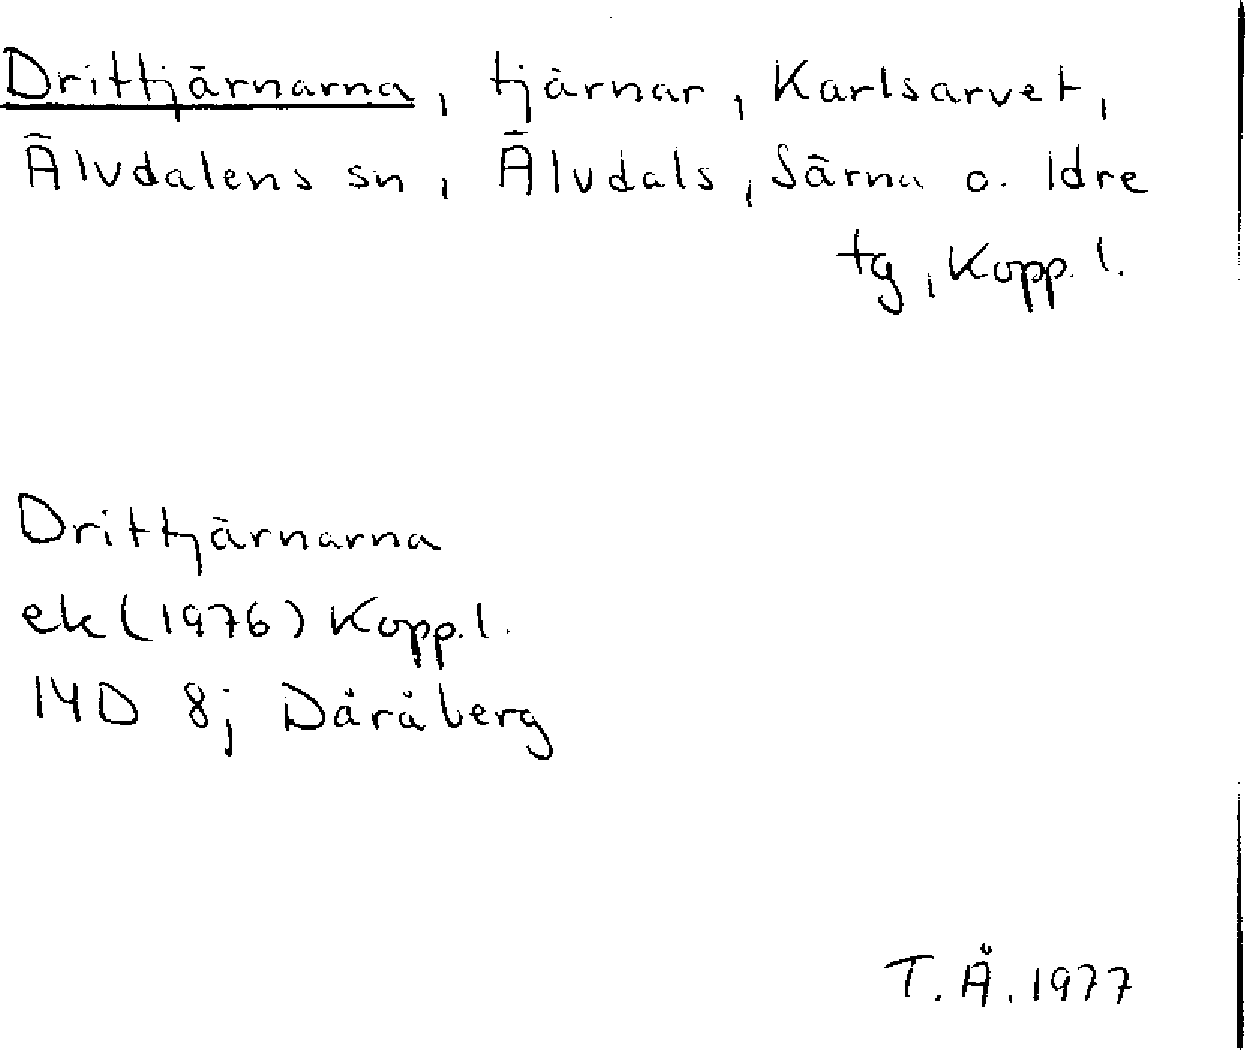 Drittjärnarna, tjärnar, Karlsarvet,
Älvdalens sn, Älvdals, Särna o. Idre
tg, Kopp. l.
Drittjärnarna
ek (1976) Kopp. l.
14D 8j Dåråberg
T. Å. 1977